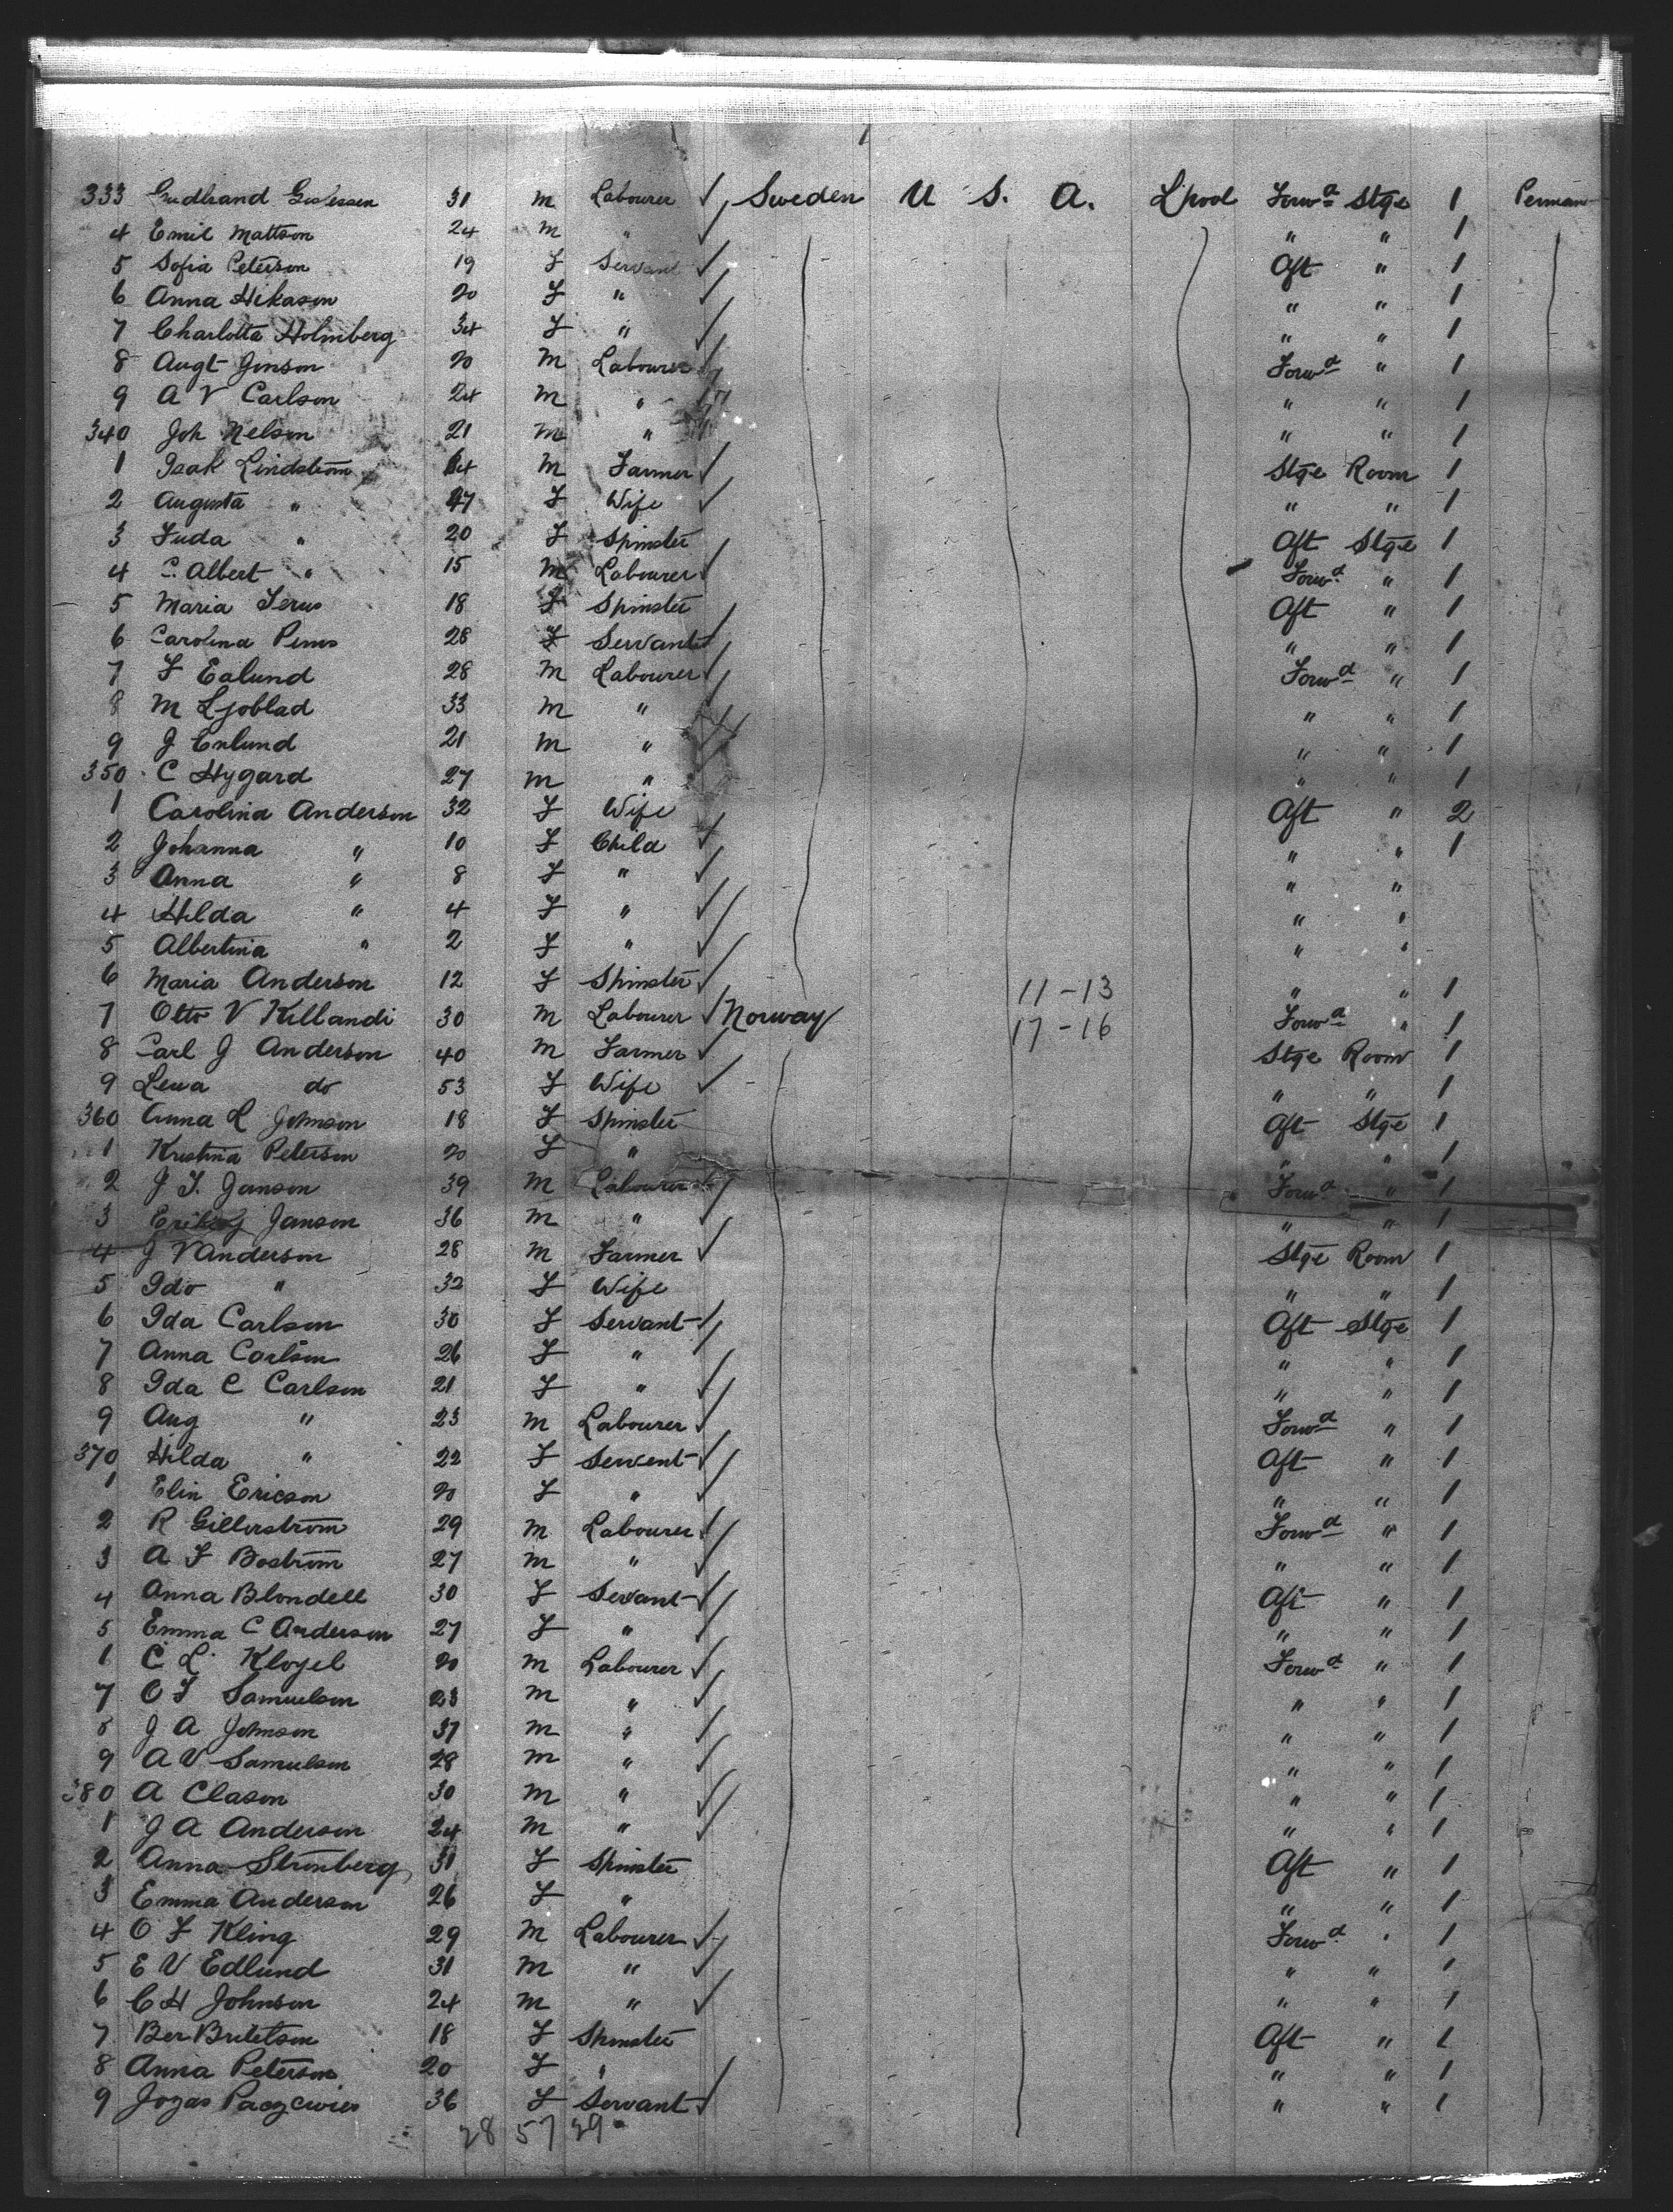 333 Gudbrand Gulessen 31 m Labourer ✓ Sweden U S. A. L'pool Forwd Stge 1 Perman
4 Emil Mattson 24 m " ✓ " " 1
5 Sofia Peterson 19 F Servant ✓ Aft " 1
6 Anna Hikason 20 F " ✓ " " 1
7 Charlotta Holmberg 34 F " ✓ " " 1
8 Augt Jonson 20 m Labourer ✓ Forwd " 1
9 A V Carlson 24 m " ✓ " " 1
340 Joh Nelson 21 m " " " 1
1 Isak Lindstrom 64 m Farmer ✓ Stge Room 1
2 Augusta " 47 F Wife ✓ " " 1
3 Fuda " 20 F Spinster Aft Stge 1
4 C. Albert " 15 m Labourer ✓ Forwd " 1
5 Maria Ferus 18 F Spinster Aft " 1
6 Carolina Penus 28 F Servant ✓ " " 1
7 F Ealund 28 m Labourer ✓ Forwd " 1
8 M Ljoblad 33 m " ✓ " " 1
9 J Enlund 21 m " ✓ " " 1
350 C Hygard 27 m " ✓ " " 1
1 Carolina Anderson 32 F Wife Aft " 2
2 Johanna " 10 F Child ✓ " " 1
3 Anna " 8 F " ✓ " "
4 Hilda " 4 F " ✓ " "
5 Albertina " 2 F " ✓ " "
6 Maria Anderson 12 F Spinster ✓ 11-13 " " 1
7 Otto V Killandi 30 m Labourer ✓ Norway 17-16 Forwd " 1
8 Carl J Anderson 40 m Farmer ✓ Stge Room 1
9 Lena do 53 F Wife ✓ " " 1
360 Anna L Johnson 18 F Spinster Aft Stge 1
1 Kristina Peterson 20 F " " " 1
2 J F. Janson 39 m Labourer ✓ Forwd " 1
3 Janson 36 m " ✓ " " 1
4 J V Anderson 28 m Farmer ✓ Stge Room 1
5 Ido " 32 F Wife " " 1
6 Ida Carlson 30 F Servant ✓ Aft Stge 1
7 Anna Carlson 26 F " ✓ " " 1
8 Ida C Carlson 21 F " ✓ " " 1
9 Aug " 23 m Labourer ✓ Forwd " 1
370 Hilda " 22 F Servent ✓ Aft " 1
1 Elin Ericson 20 F " ✓ " " 1
2 R Gillerstrom 29 m Labourer ✓ Forwd " 1
3 A F Bostrom 27 m " ✓ " " 1
4 Anna Blondell 30 F Servant ✓ Aft " 1
5 Emma C Anderson 27 F " ✓ " " 1
1 C L Klogel 20 m Labourer ✓ Forwd " 1
7 O F Samuelson 23 m " ✓ " " 1
8 J A Johnson 37 m " ✓ " " 1
9 A V Samuelson 28 m " ✓ " " 1
380 A Clason 30 m " ✓ " " 1
1 J A Anderson 24 m " ✓ " " 1
2 Anna Strinberg 31 F Spinster Aft " 1
3 Emma Anderson 26 F " " " 1
4 O F Kling 29 m Labourer ✓ Forwd " 1
5 E V Edlund 31 m " ✓ " " 1
6 C H Johnson 24 m " ✓ " " 1
7 Ber Britetson 18 F Spinster Aft " 1
8 Anna Peterson 20 F " " " 1
9 Jozas Paczcwies 36 F Servant ✓ " " 1
28 57 29